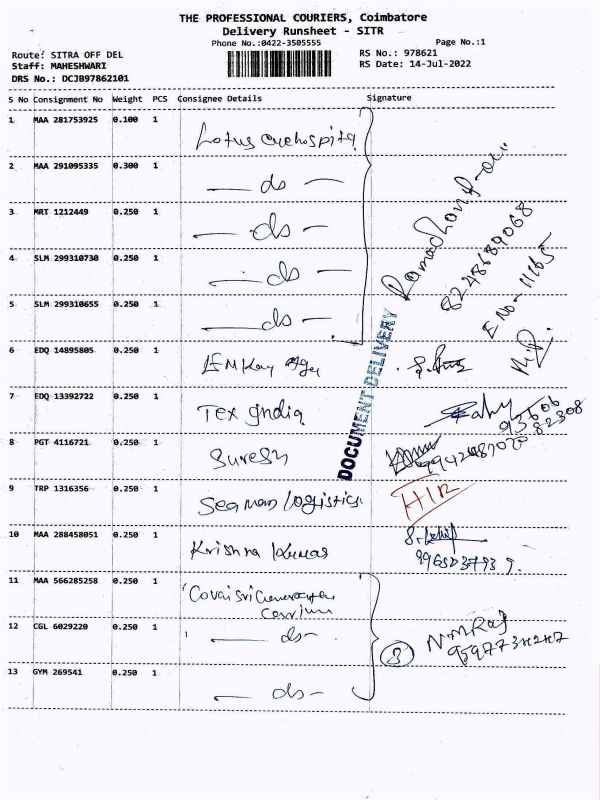 THE PROFESSIONAL COURIERS, Coimbatore
Delivery Runsheet - SITR
Phone No.:0422-3505555 Page No.:1
Route: SITRA OFF DEL RS No.: 978621
Staff: MAHESHWARI RS Date: 14-Jul-2022
DRS No.: DCJB97862101
S No Consignment No Weight PCS Consignee Details Signature
1 MAA 281753925 0.100 1 Lotus eyehospital
2 MAA 291095335 0.300 1 — do —
3 MRT 1212449 0.250 1 — do —
4 SLM 299310730 0.250 1 — do —
5 SLM 299310655 0.250 1 — do —
8248689068
E NO - 11165
DOCUMENT DELIVERY
6 EDQ 14895805 0.250 1
7 EDQ 13392722 0.250 1 Tex India
93606
82308
8 PGT 4116721 0.250 1 Suresh
9 TRP 1316356 0.250 1 Seaman logistics
10 MAA 288458051 0.250 1 Krishna Kumar
11 MAA 566285258 0.250 1 Covai Sri
12 CGL 6029220 0.250 1 — do —
3 N.M Raj
13 GYM 269541 0.250 1 — do —